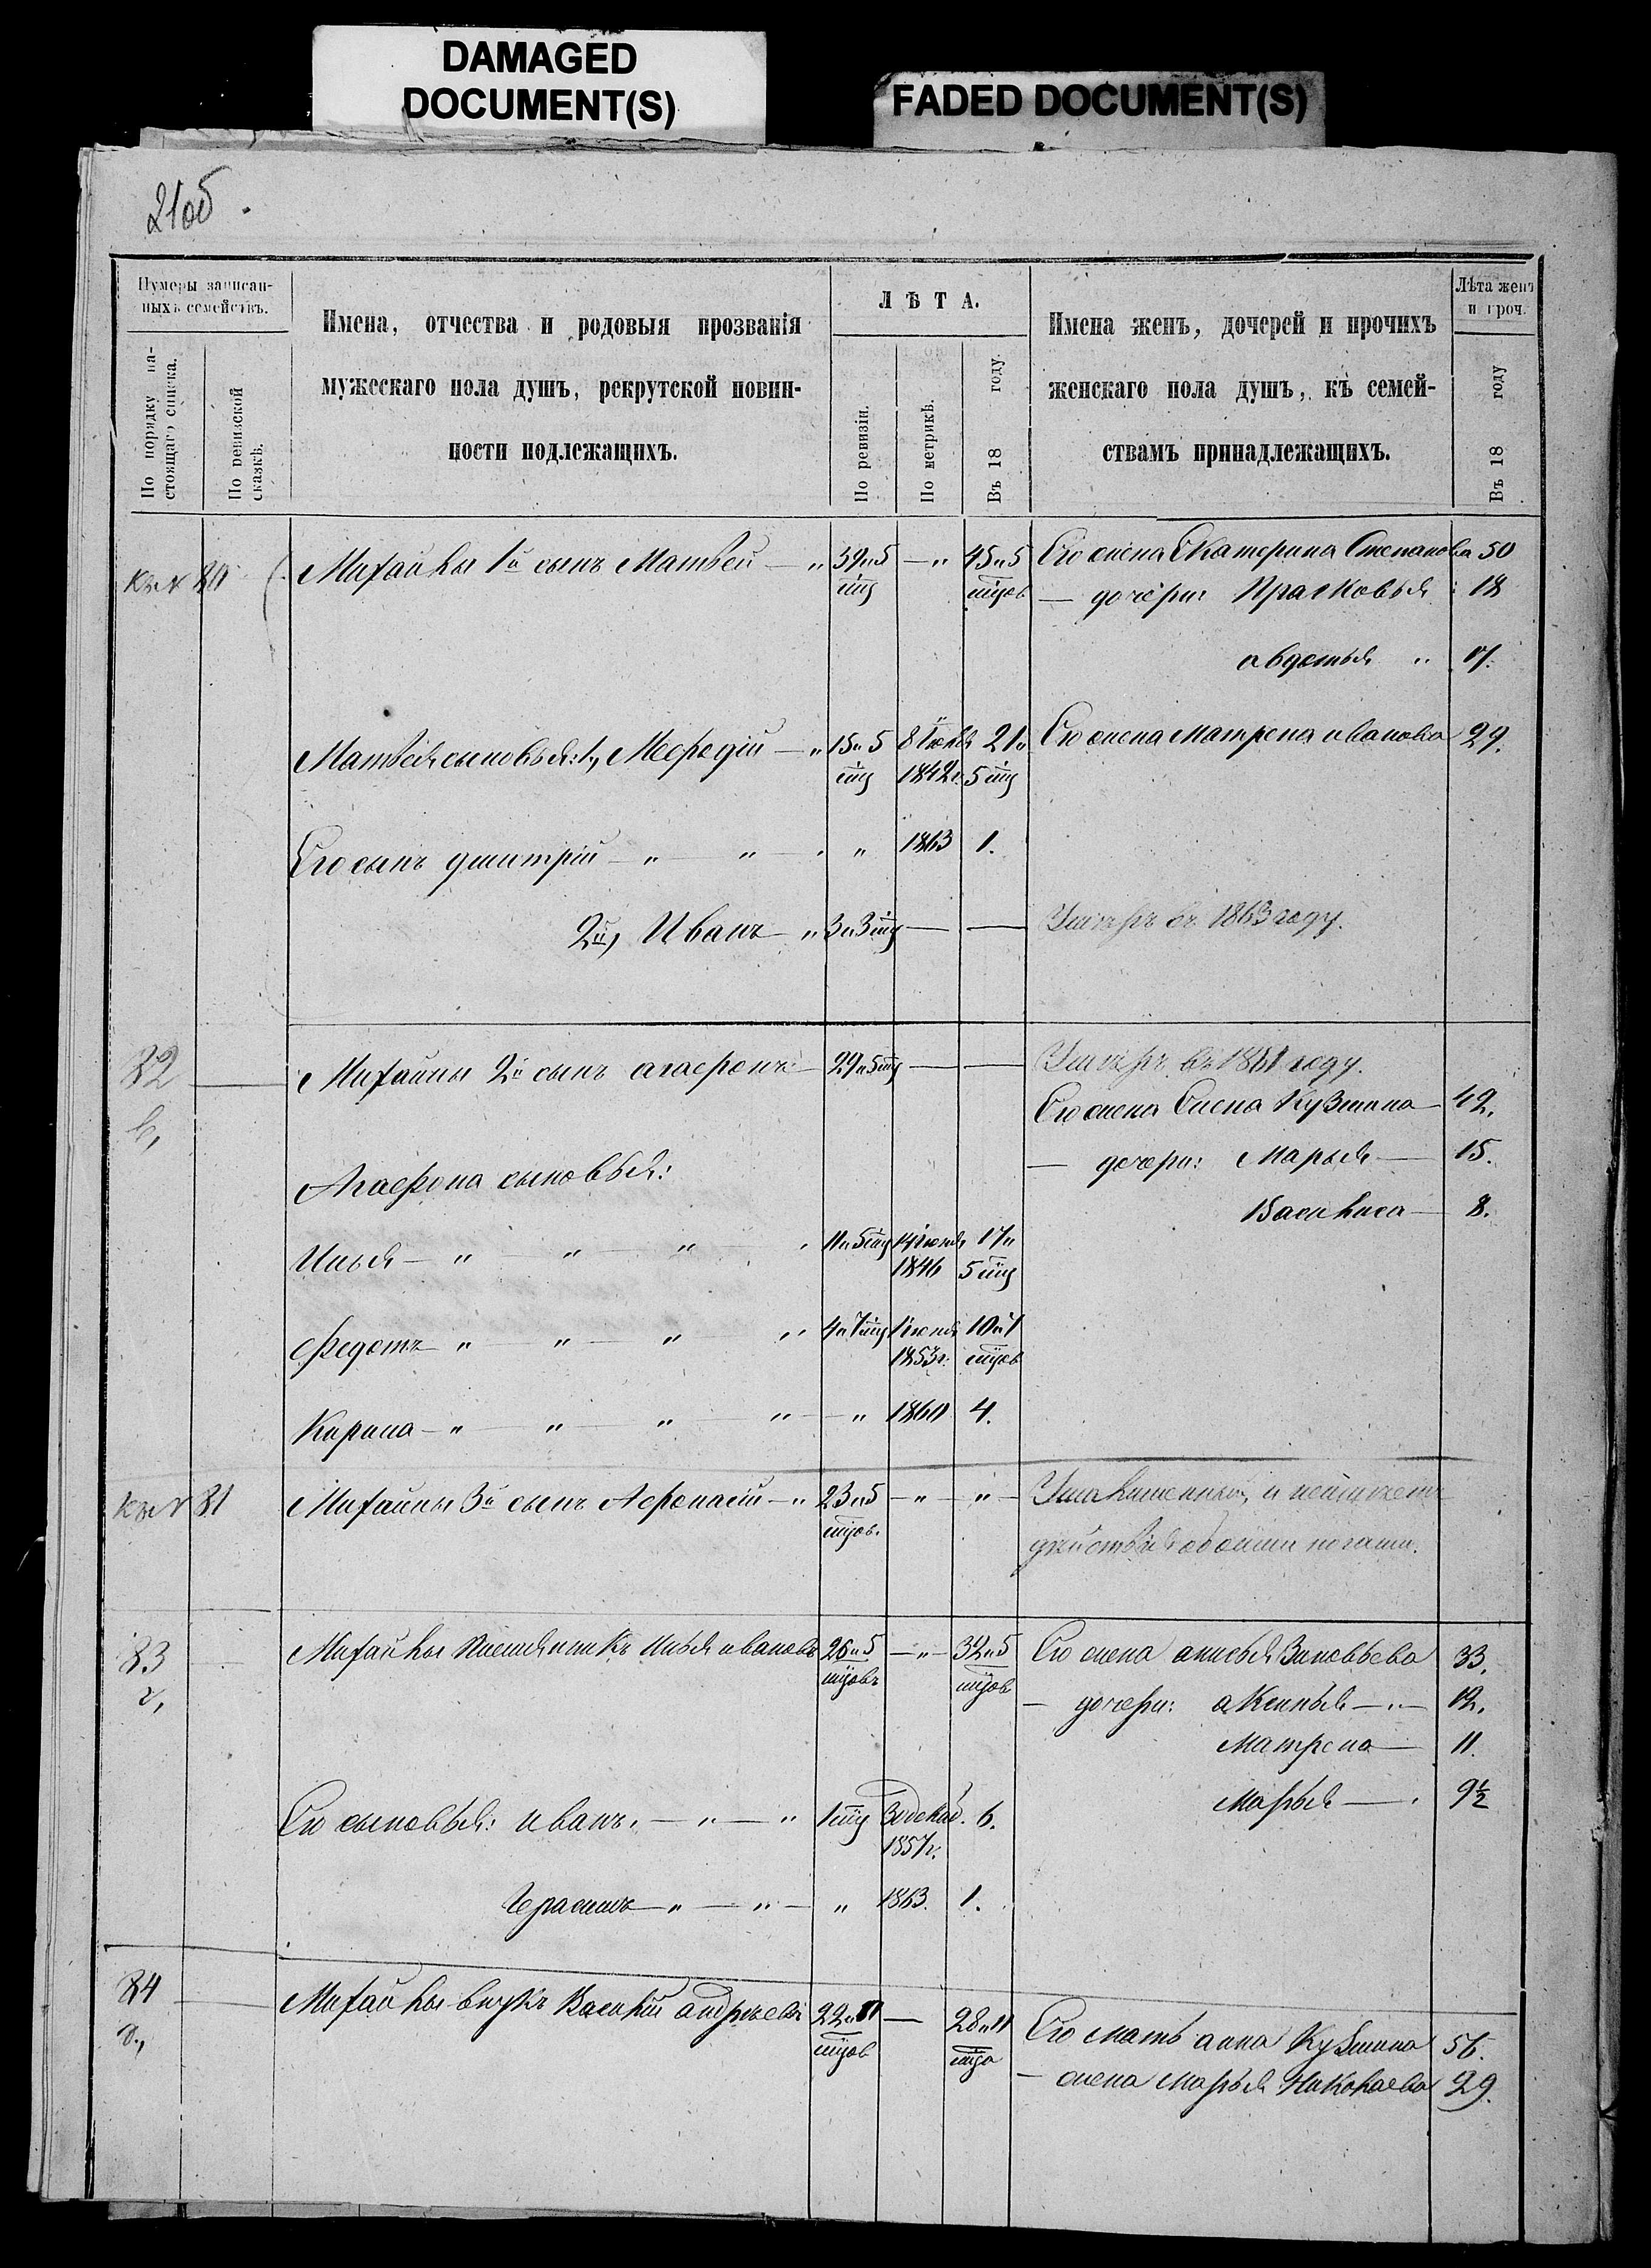 DAMAGED
DOCUMENT(S)
FADED DOCUMENT(S)
21об.
Нумеры записан-
ныхъ семействъ.
По порядку на-
стоящаго списка.
По ревизской
сказкѣ.
Имена, отчества и родовыя прозванія
мужескаго пола душъ, рекрутской повин-
ности подлежащихъ.
ЛѢТА.
По ревизіи.
По метрикѣ.
Въ 18 году.
Имена женъ, дочерей и прочихъ
женскаго пола душъ, къ семей-
ствамъ принадлежащихъ.
Лѣта женъ
и проч.
Въ 18 году
Къ № 80 Михайлы 1й сынъ Матвей — „ 39 и 5 мѣс — „ 45 и 5 мѣсов Его жена Екатерина Степанова 50
— дочери: Прасковья 18
авдотья „ 17.
Матвея сыновья: 1, Мефодій — „ 15 и 5 мѣс 8 Іюня 1842 г. 21 и 5 мѣс Его жена Матрена иванова 29.
Его сынъ дмитрій — „ — „ „ 1863 1.
2й, Иванъ — „ 3 и 3 мѣс — — Умеръ въ 1863 году.
82 — Михайлы 2й сынъ агафонъ — 29 и 5 мѣс — — Умеръ въ 1861 году.
в, Его жена Елена Кузмина — 42.
Агафона сыновья: — дочери: Марья — 15.
Василиса — 8.
Илья — „ — „ — „ 11 и 5 мѣс Іюля 1846 17 и 5 мѣс
федотъ — „ — „ — „ — „ 4 и 7 мѣс 1853 г. 10 и 7 мѣсов
Кирила — „ — „ — „ — „ — „ 1860 4.
Къ № 81 Михайлы 3й сынъ Афонасій — „ 23 и 5 мѣсов. — „ — „ — Умалишенный, и неимѣетъ
дѣйствія обоими ногами.
83 — Михайлы племянникъ Илья ивановъ 26 и 5 мѣсовъ — „ — 32 и 5 мѣсов Его жена анисья Зиновьева 33.
г, — дочери: аксинья — „ — 12.
Матрена — 11.
Марья — 9½
Его сыновья: иванъ. — „ — „ 1 мѣс декаб. 1857 г. 6.
Герасимъ — „ — „ — „ 1863. 1.
84 — Михайлы внукъ Василій андреевъ 22 и 11 мѣсов — 28 и 11 мѣсо Его мать анна Кузмина 56.
д., — жена Марья Николаева 29.